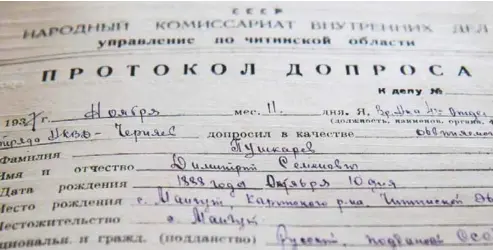 СССР
НАРОДНЫЙ КОМИССАРИАТ ВНУТРЕННИХ ДЕЛ
управление по читинской области
ПРОТОКОЛ ДОПРОСА
к делу №
1937 г. Ноября мес. 11 дня. Я,
(должность, наименов. органа,
НКВД Черняев допросил в качестве обвиняемого
Фамилия Пушкарев
Имя и отчество Димитрий
Дата рождения 1888 года Октября 10 дня
Место рождения с. Мангут р-на, Читинской
Местожительство с. Мангут
и гражд. (подданство) Русский